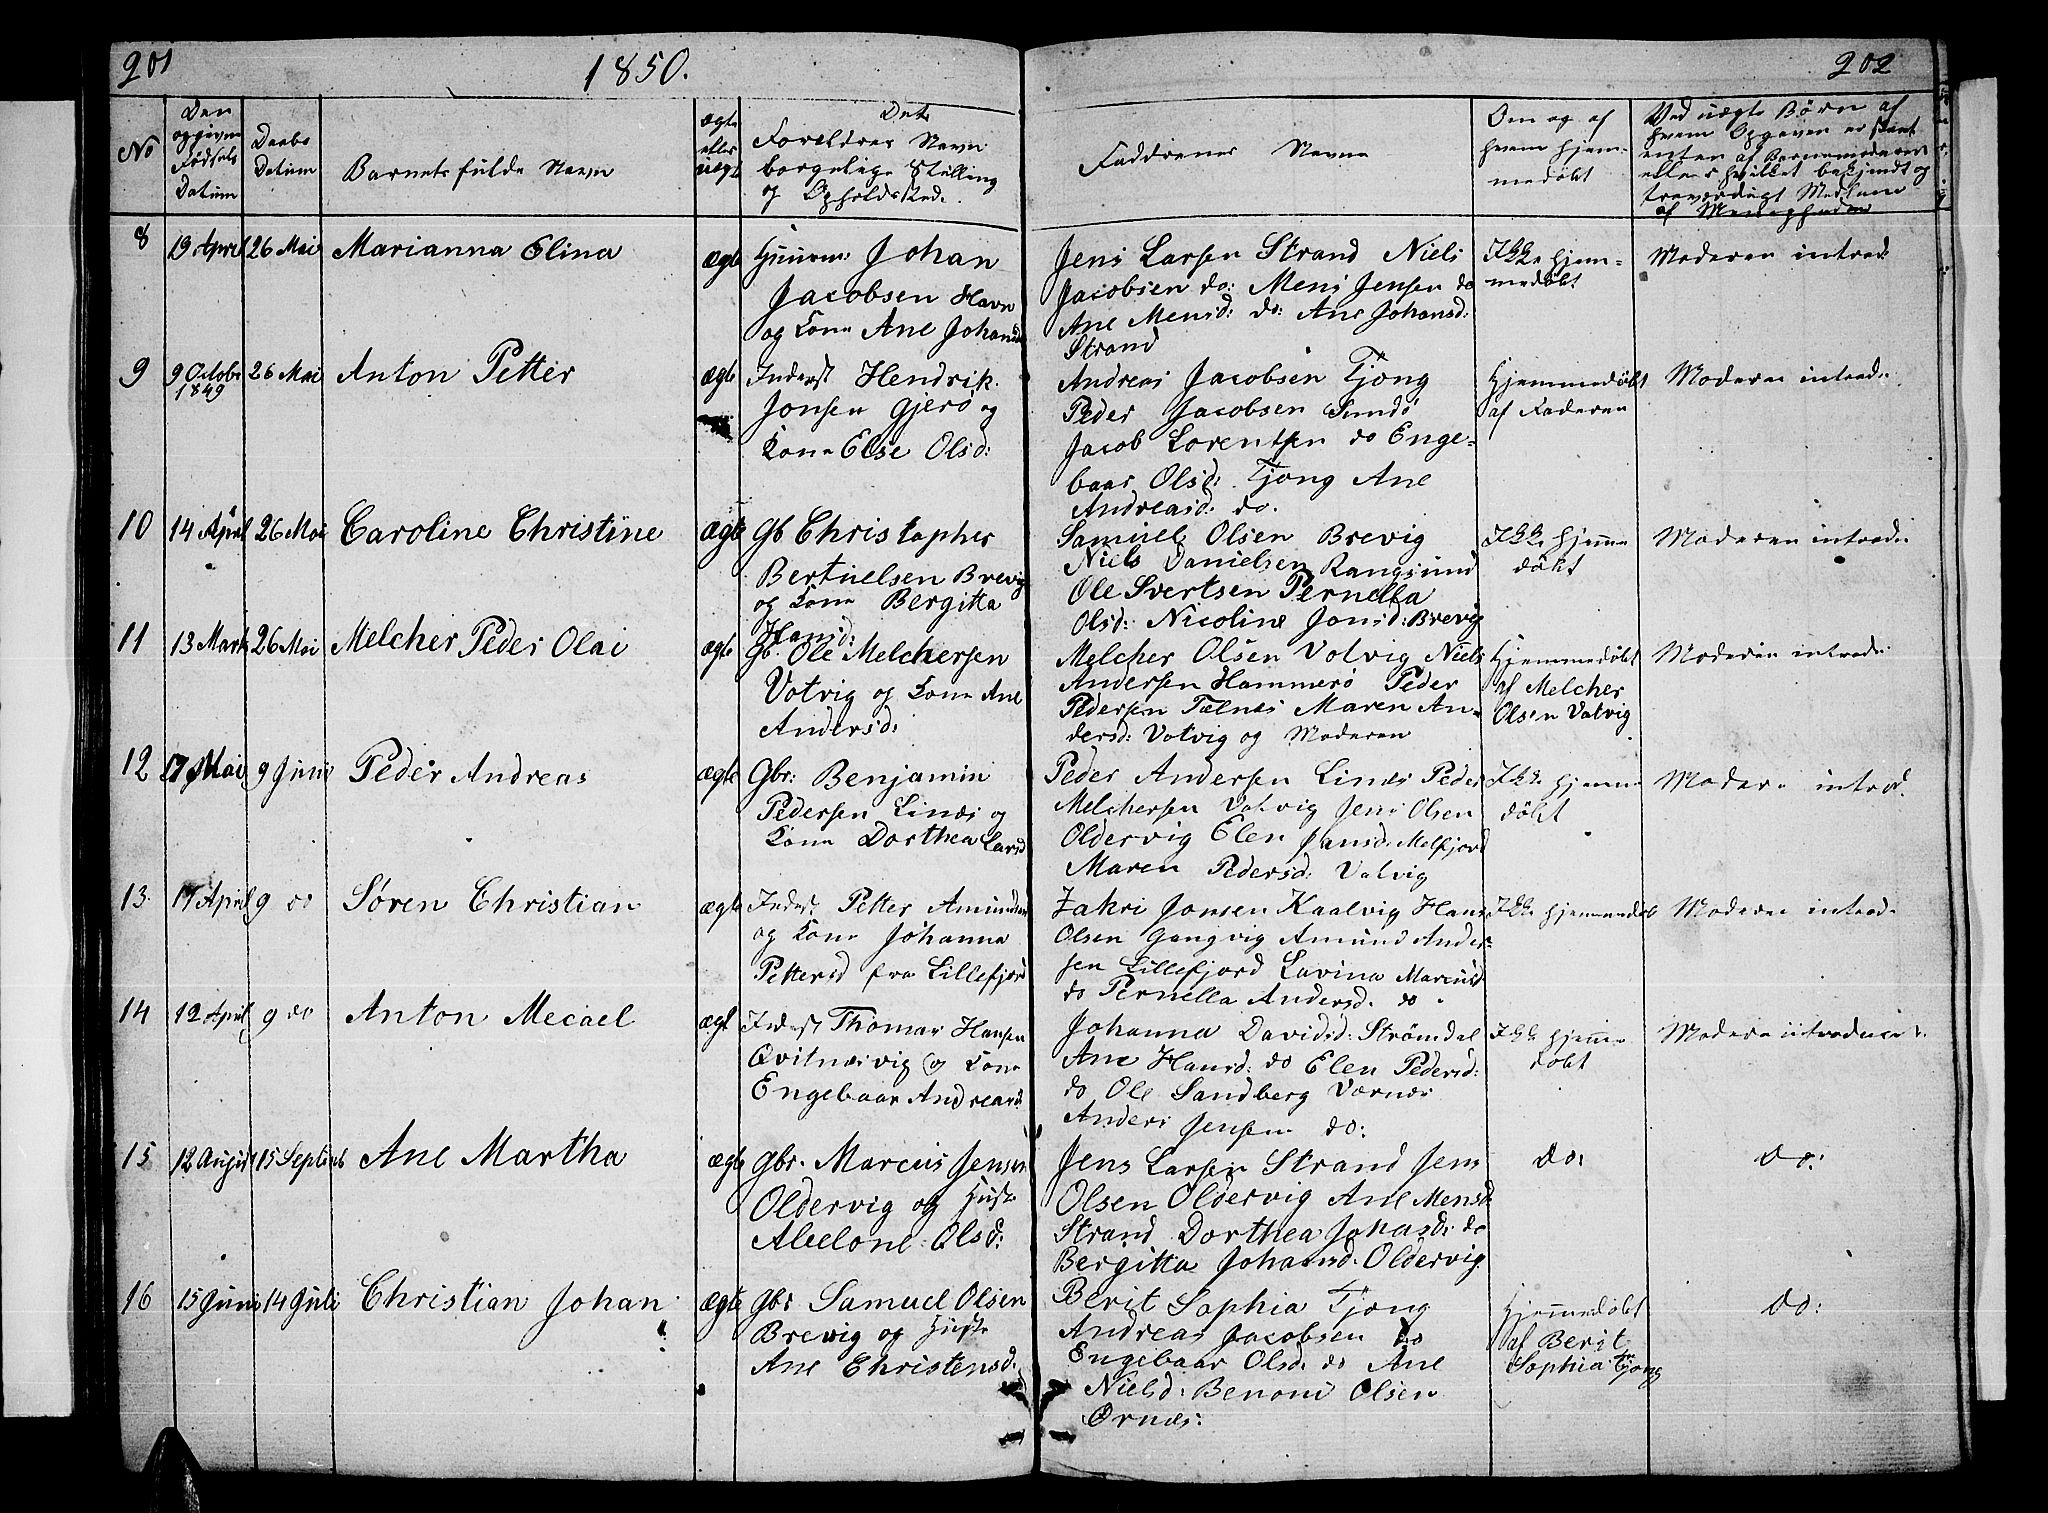 201
1850.
202
No
Den
opgivne
Fødsels
Datum
Daabs
Datum
Barnets fulde Navn
ægte
eller
uægt
Dets
Foreldres Navn
borgelige Stilling
og Opholdssted.
Faddrenes Navne
Om og af
hvem hjem-
medøbt
Ved uægte Børn af
hvem Opgaven er skeet
enten af Barnemoderen
ellers hvilket bekjendt og
troværdigt Medlem
af Menigheden
8
19 April
26 Mai
Marianna Elina
ægte
Huusm: Johan
Jacobsen Havn
og Kone Ane Johansd
Jens Larsen Strand Niels
Jacobsen do: Mens Jensen do
Ane Mensd: do: Ane Johansd:
Strand
Ikke hjem-
medøbt
Moderen introd:
9
9 Octobr
1849
26 Mai
Anton Petter
ægte
Inderst Hendrik
Jonsen Gjerø og
Kone Else Olsd:
Andreas Jacobsen Tjong
Peder Jacobsen Sundø
Jacob Lorentsen do Enge-
baar Olsd: Tjong Ane
Andreasd: do.
Hjemmedøbt
af Faderen
Moderen introd:
10
14 April
26 Mai
Caroline Christine
ægte
Gb Christopher
Bertuelsen Brevig
og Kone Bergitta
Hansd:
Samuel Olsen Brevig
Niels Danielsen Rangsund
Ole Svertsen Pernella
Olsd: Nicoline Jonsd: Brevig
Ikke hjemme
døbt
Moderen introd:
11
13 Marts
26 Mai
Melcher Peder Olai
ægte
Gb. Ole Melchersen
Votvig og Kone Ane
Andersd:
Melcher Olsen Votvig Niels
Andersen Hammerø Peder
Pedersen Telnes Maren An-
dersd: Votvig og Moderen
Hjemmedøbt
af Melcher
Olsen Votvig
Moderen introd:
12
17 Mai
9 Juni
Peder Andreas
ægte
Gbr: Benjamin
Pedersen Lines og
Kone Dorthea Larsd
Peder Andersen Lines Peder
Melchersen Votvig Jens Olsen
Oldervig Elen Jansd: Melfjord
Maren Pedersd: Votvig
Ikke hjemme
døbt
Modere introd.
13.
17 April
9 do
Søren Christian
ægte
Inderst Petter Amundsen
og Kone Johanna
Pettersd fra Lillefjord
Zakri Jonsen Kaalvig Hans
Olsen Gangvig Amund Ander-
sen Lillefjord Lavina Marcusd
do Pernella Andersd. do.
Ikke hjemmedøbt
Moderen introd.
14
12 April
9 do
Anton Mecael
ægt
Inderst Thomas Hansen
Qvitnesvig og Kone
Engebaar Andreasd:
Johanna Davidsd: Strømdal
Ane Hansd: do Elen Pedersd:
do Ole Sandberg Værnes
Anders Jensen do:
Ikke hjemme
døbt
Modere introducert.
15
12 August
15 Septimb
Ane Martha
ægte
Gbr. Marcus Jensen
Oldervig og Hustr
Abelone Olsd:
Jens Larsen Strand Jens
Olsen Oldervig Ane Mensd:
Strand Dorthea Johasd: do
Bergitta Johansd. Oldervig.
do:
do:
16
15 Juni
14 Juli
Christian Johan
ægte
Gbr Samuel Olsen
Brevig og Hustr
Ane Christensd.
Berit Sophia Tjong
Andreas Jacobsen do
Engebaar Olsd. do Ane
Nielsd: Benoni Olsen
Ørnæs:
Hjemmedøbt
af Berit
Sophia Tjong
do: